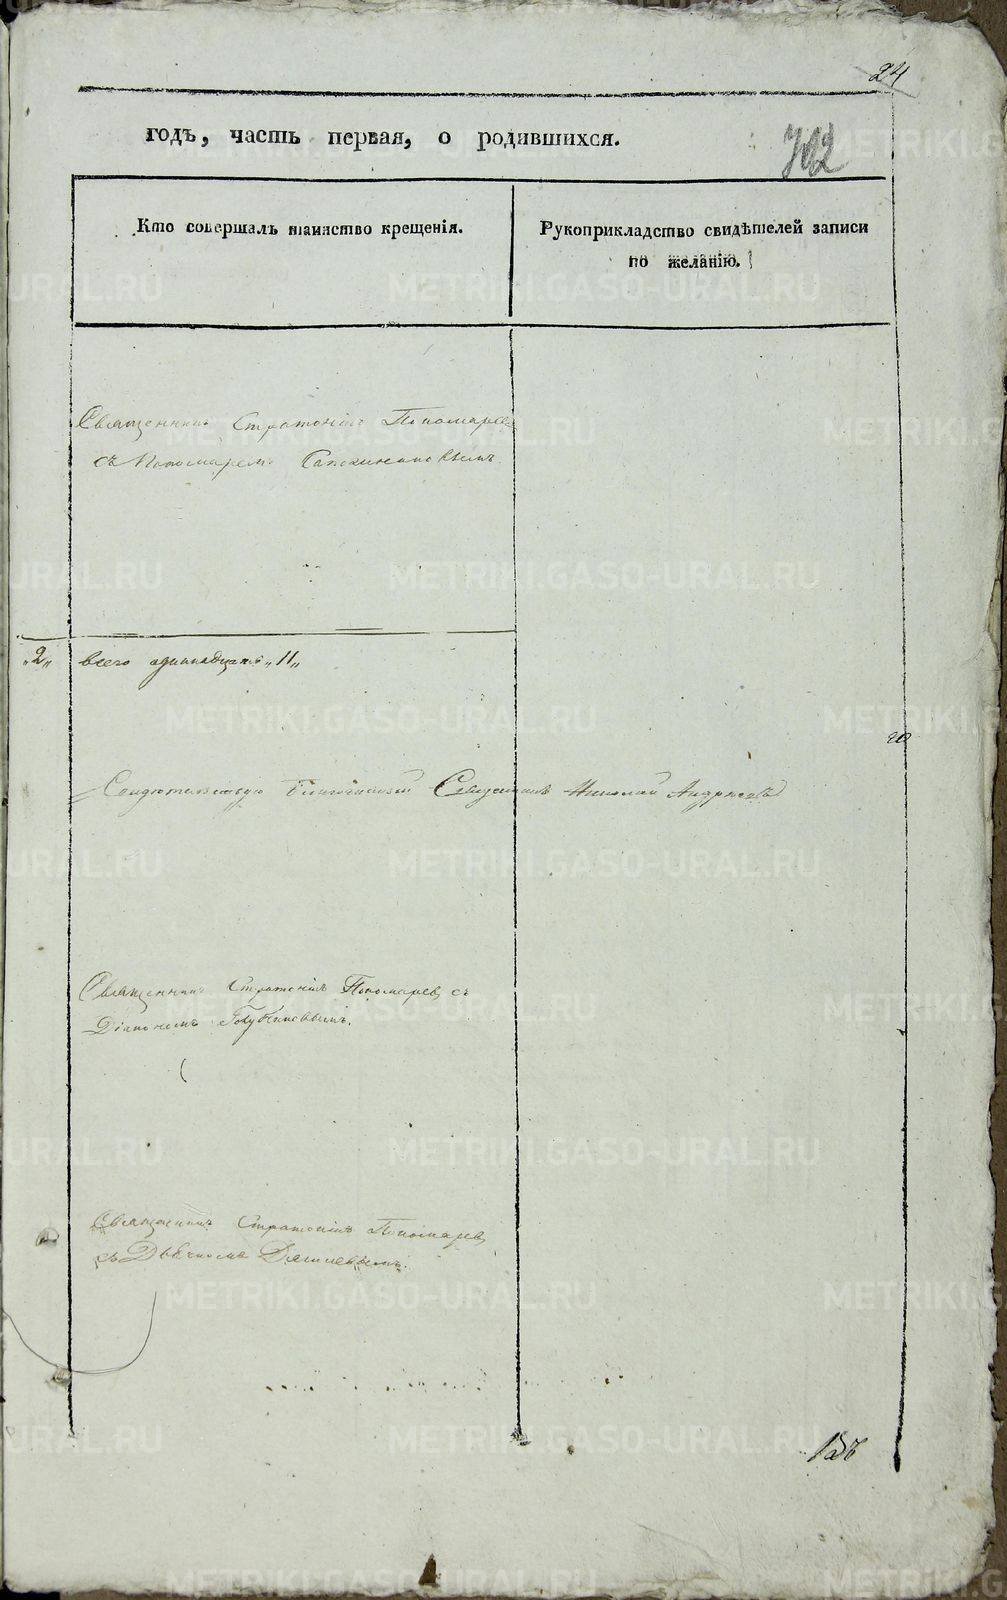 24
годъ, часть первая, о родившихся.
702
Кто совершалъ таинство крещенія.
Рукоприкладство свидѣтелей записи
по желанію.
Священникъ Стратоникъ Пономаревъ
съ Пономаремъ
„2„ всего одиннадцать „11„
Свидѣтельствую Благочинный Священникъ Николай Андреевъ
Священникъ Стратоникъ Пономаревъ съ
Діакономъ
Священникъ Стратоникъ Пономаревъ
съ Дьячкомъ
METRIKI.GASO-URAL.RU